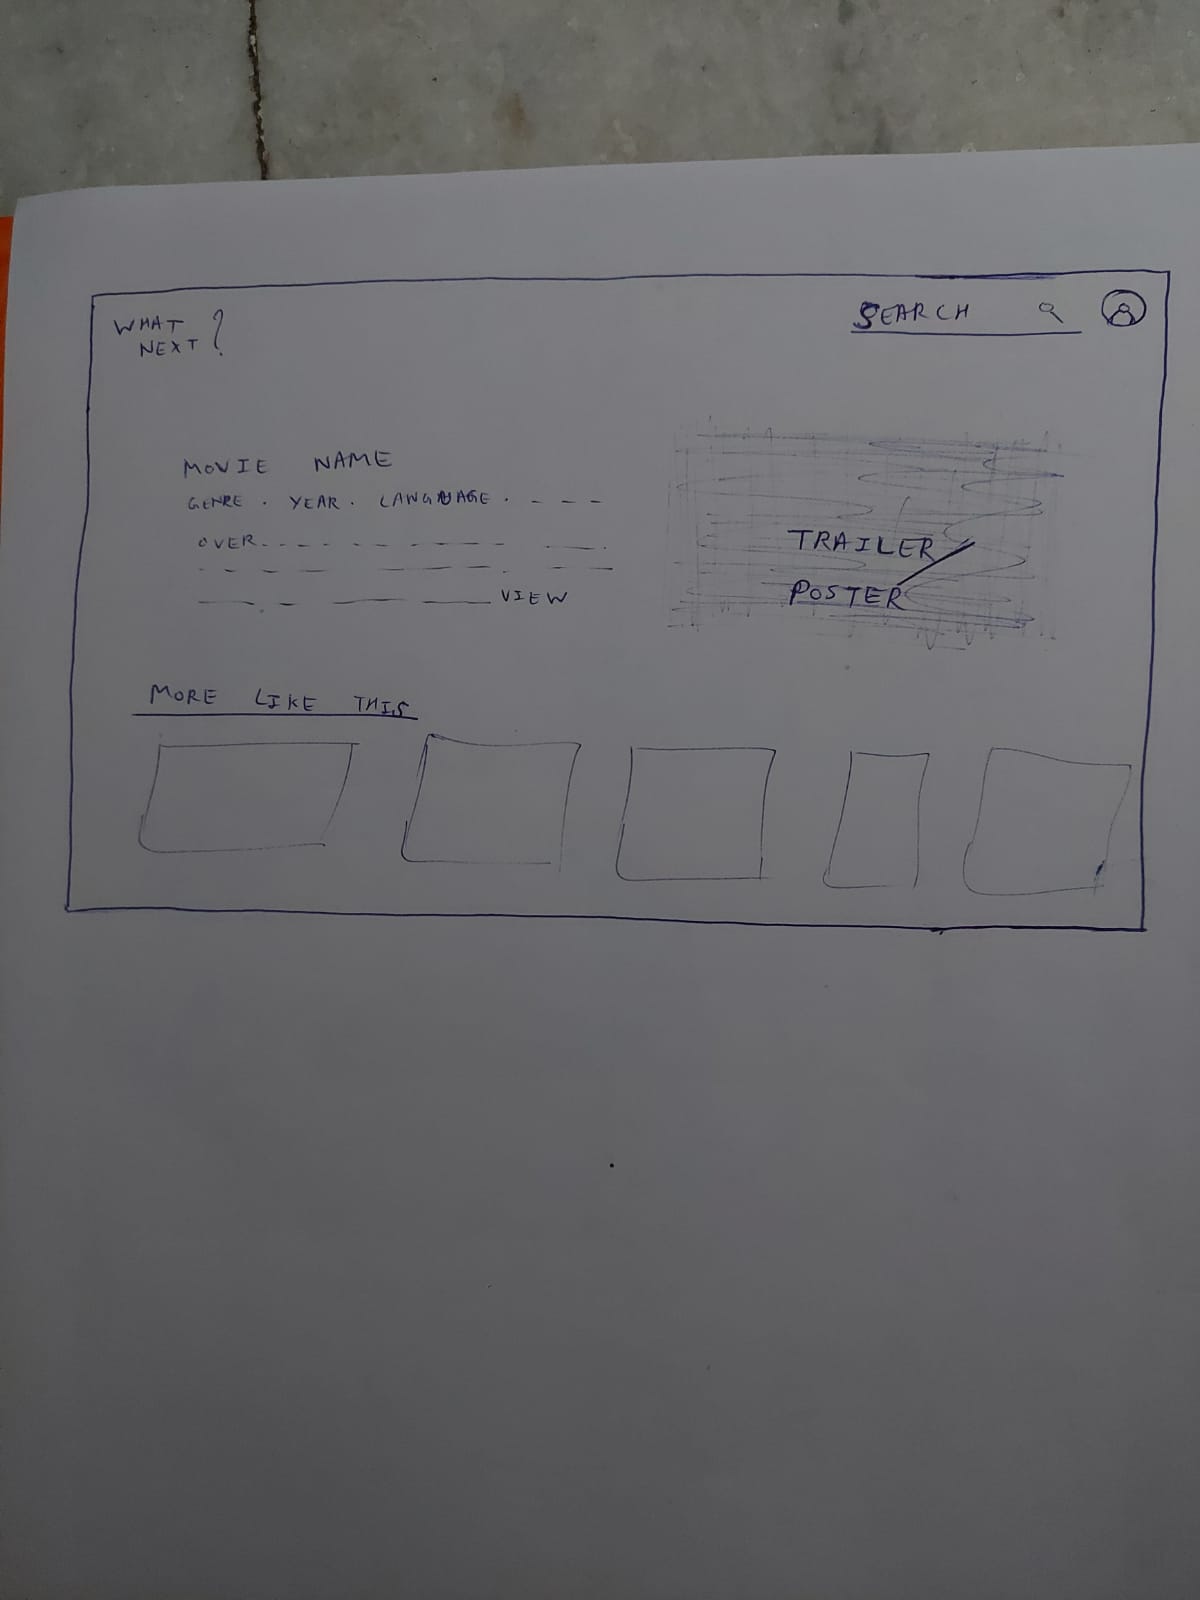 WHAT
NEXT ?
SEARCH
MOVIE NAME
GENRE . YEAR . LANGUAGE . - - -
OVER
VIEW
TRAILER/
POSTER
MORE LIKE THIS